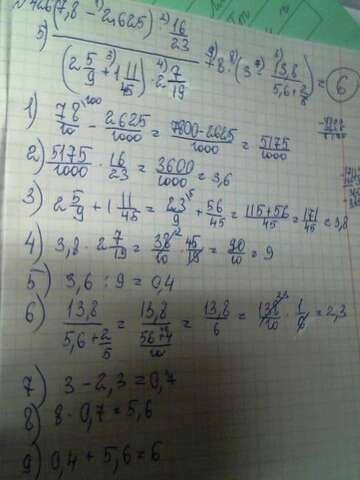 №426 (7,8 - 2,625) · 16/23
5) (2 5/9 + 1 11/45) · 2 7/19 + 8 · (3 - 13,8/(5,6 + 2/5)) = 6
1) 78/10 - 2625/1000 = 7800-2625/1000 = 5175/1000
2) 5175/1000 · 16/23 = 3600/1000 = 3,6
3) 2 5/9 + 1 11/45 = 23/9 + 56/45 = 115+56/45 = 171/45 = 3,8
4) 3,8 · 2 7/19 = 38/10 · 45/19 = 90/10 = 9
5) 3,6 : 9 = 0,4
6) 13,8/(5,6 + 2/5) = 13,8/(56+4/10) = 13,8/6 = 138/10 · 1/6 = 2,3
7) 3 - 2,3 = 0,7
8) 8 · 0,7 = 5,6
9) 0,4 + 5,6 = 6